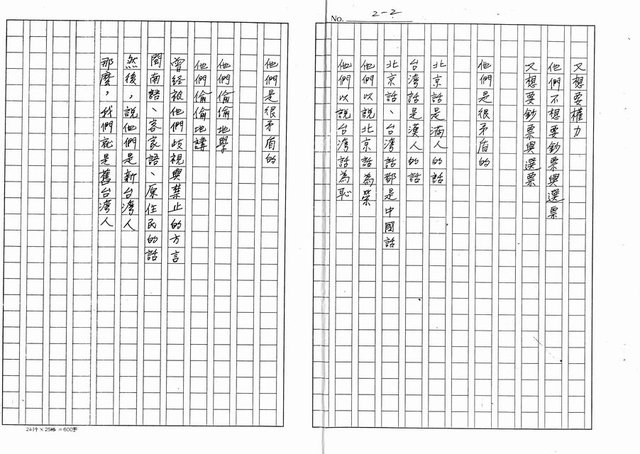 No. 2-2
又想要權力
他們不想要鈔票與選票
又想要鈔票與選票
他們是很矛盾的
北京話是滿人的話
台灣話是漢人的話
北京話、台灣話都是中國話
他們以說北京話為榮
他們以說台灣話為恥
他們是很矛盾的
他們偷偷地學
他們偷偷地講
曾經被他們歧視與禁止的方言
閩南語、客家語、原住民的話
然後，說他們是新台灣人
那麼，我們就是舊台灣人
24行×25格=600字